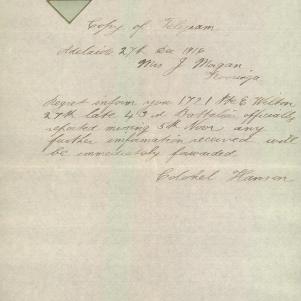 Copy of Telegram
Adelaide 27th Dec 1916
Mrs J Morgan
Kooringa
Regret inform you 1721 Pte E Wilton
27th late 43rd Battalion officially
reported missing 5th Novr any
further information received will
be immediately forwarded
Colonel Hanson